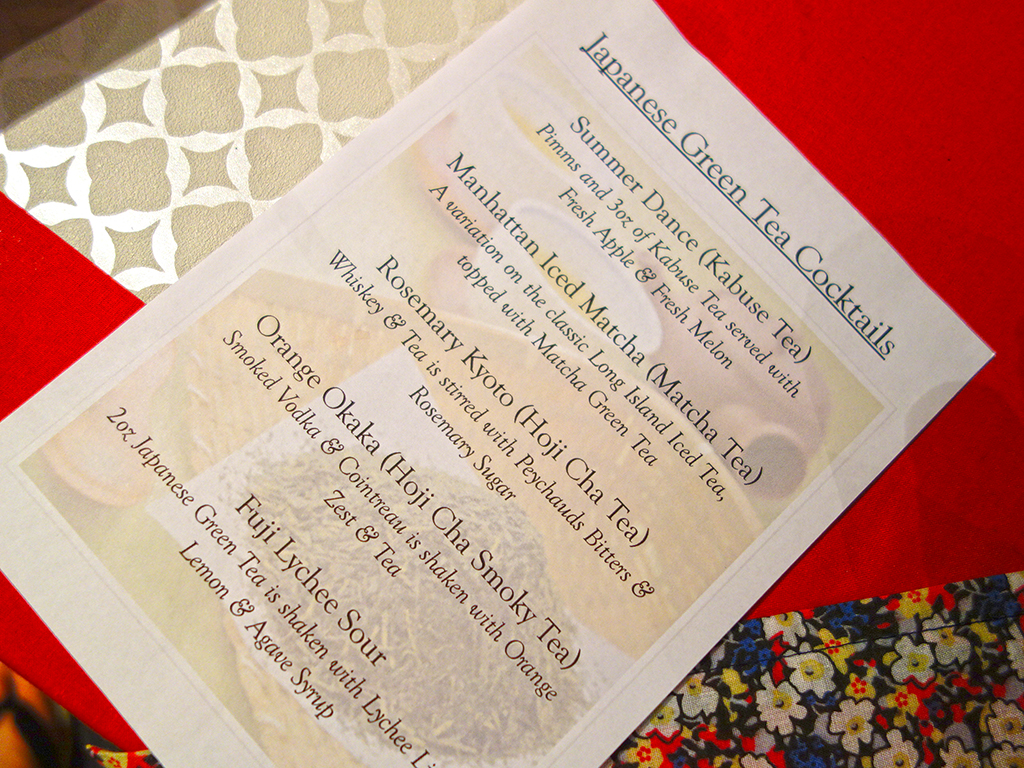 Japanese Green Tea Cocktails
Summer Dance (Kabuse Tea)
Pimms and 3oz of Kabuse Tea served with
Fresh Apple & Fresh Melon
Manhattan Iced Matcha (Matcha Tea)
A variation on the classic Long Island Iced Tea,
topped with Matcha Green Tea
Rosemary Kyoto (Hoji Cha Tea)
Whiskey & Tea is stirred with Peychauds Bitters &
Rosemary Sugar
Orange Okaka (Hoji Cha Smoky Tea)
Smoked Vodka & Cointreau is shaken with Orange
Zest & Tea
Fuji Lychee Sour
2oz Japanese Green Tea is shaken with Lychee
Lemon & Agave Syrup